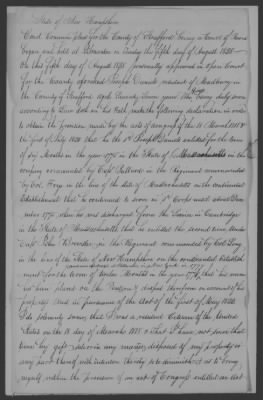 State of New Hampshire
Court Common Pleas for the County of Strafford being a Court of Record
began and held at on Tuesday the fifth day of August 1828
On this fifth day of August 1828 personally appeared in open Court
for the County aforesaid Joseph Daniels resident of Madbury in
the County of Strafford aged Seventy Seven years who being duly sworn
according to Law doth on his Oath make the following declaration in order
to obtain the provision made by the acts of Congress of the 18 March 1818 &
the first of May 1820 that he the sd Joseph Daniels enlisted for the term
of Months in the year 1775 in the State of Massachusetts in the
company commanded by Capt in the Regiment commanded
by Col. in the line of the State of Massachusetts on the continental
Establishment that he continued to serve in sd Corps until about
1775 when he was discharged from the Service in Cambridge
in the State of Massachusetts, that he enlisted the second time under
Capt John Brewster in the Regiment commanded by Col Long
in the line of the State of New Hampshire on the continental Establish
ment for the term of twelve Months in the year 1776, that his name
was placed on the Pension & dropped therefrom on account of his
property and in pursuance of the Act of the first of May 1820.
I do solemnly swear that I was a resident Citizen of the United
States on the 18 day of March 1818 & that I have not since that
time by gift sale or in any manner disposed of my property or
any part thereof with intention thereby so to diminish it as to bring
myself within the provision of an act of Congress entitled an Act